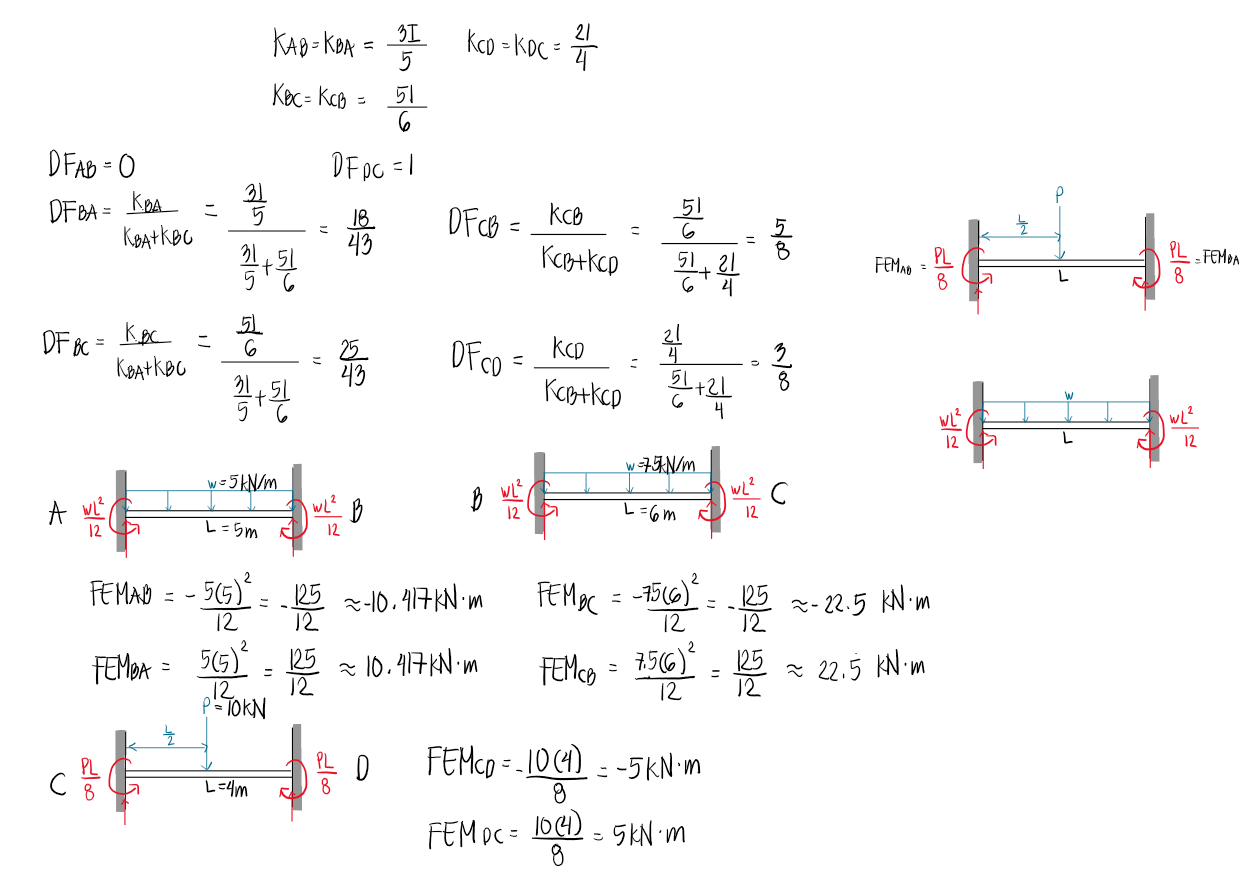 K_AB = K_BA = 3I/5 K_CD = K_DC = 2I/4
K_BC = K_CB = 5I/6
DF_AB = 0 DF_DC = 1
DF_BA = K_BA/(K_BA+K_BC) = (3I/5)/(3I/5 + 5I/6) = 18/43
DF_CB = K_CB/(K_CB+K_CD) = (5I/6)/(5I/6 + 2I/4) = 5/8
P
L/2
FEM_AB = PL/8 L PL/8 = FEM_BA
DF_BC = K_BC/(K_BA+K_BC) = (5I/6)/(3I/5 + 5I/6) = 25/43
DF_CD = K_CD/(K_CB+K_CD) = (2I/4)/(5I/6 + 2I/4) = 3/8
w
wL²/12 L wL²/12
w = 5kN/m
A wL²/12 L = 5m wL²/12 B
w = 7.5kN/m
B wL²/12 L = 6m wL²/12 C
FEM_AB = - 5(5)²/12 = - 125/12 ≈ -10.417kN·m
FEM_BC = -7.5(6)²/12 = - 125/12 ≈ - 22.5 kN·m
FEM_BA = 5(5)²/12 = 125/12 ≈ 10.417kN·m
FEM_CB = 7.5(6)²/12 = 125/12 ≈ 22.5 kN·m
P = 10kN
L/2
C PL/8 L = 4m PL/8 D
FEM_CD = - 10(4)/8 = -5kN·m
FEM_DC = 10(4)/8 = 5kN·m